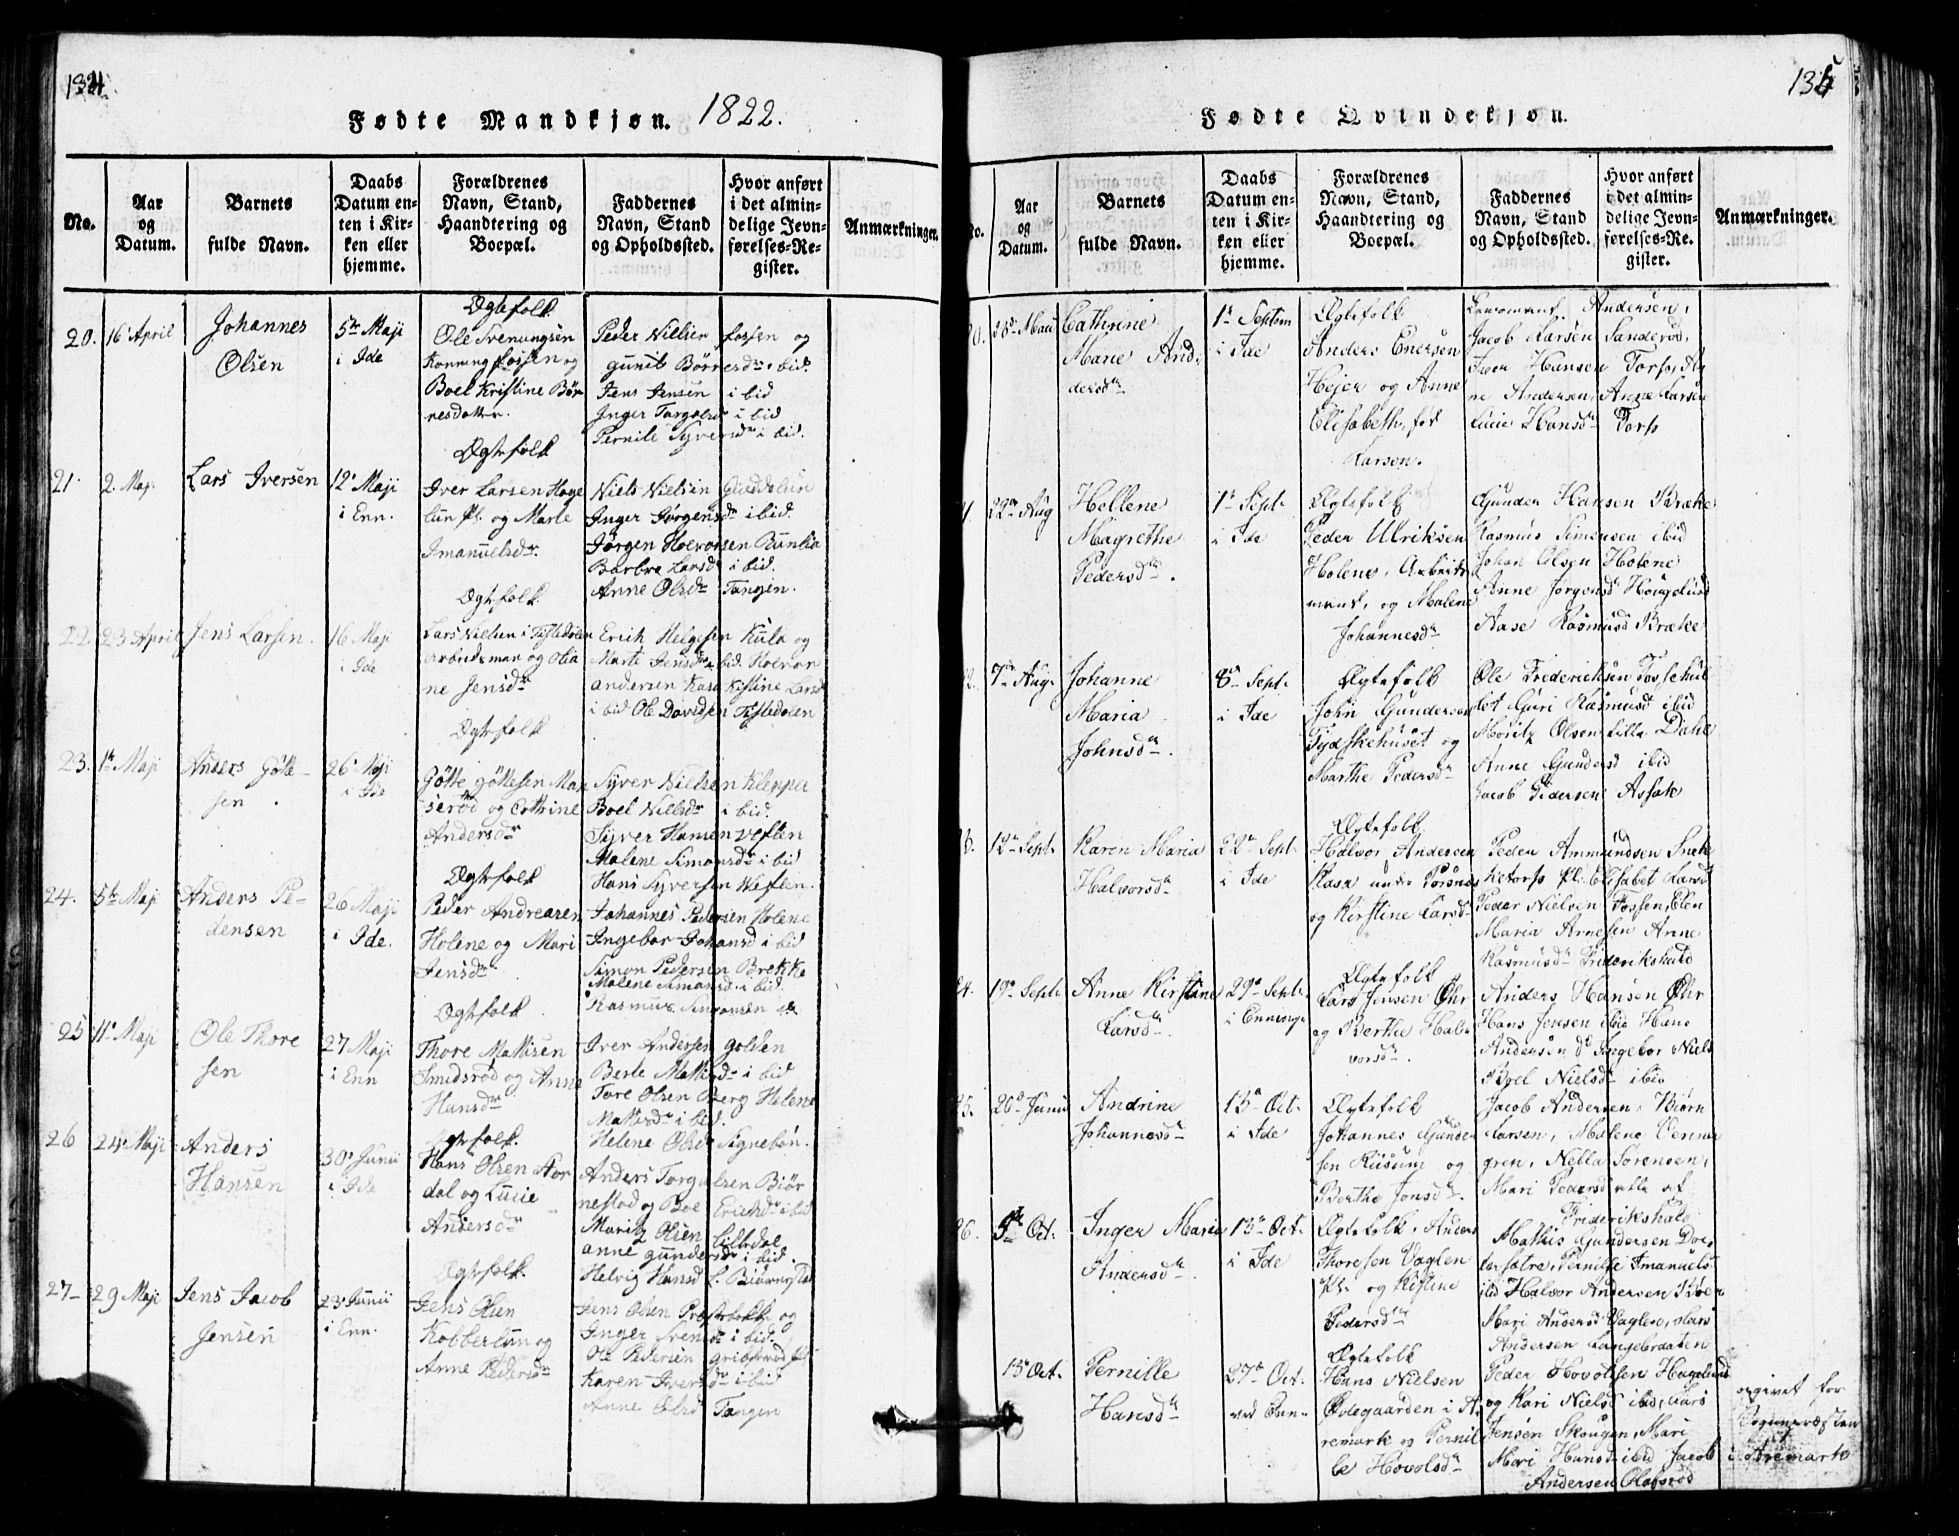 134
Fødte Mandkjøn. 1822.
No.
Aar
og
Datum.
Barnets
fulde Navn.
Daabs
Datum en-
ten i Kir-
ken eller
hjemme.
Forældrenes
Navn, Stand,
Haandtering og
Boepæl.
Faddernes
Navn, Stand
og Opholdssted.
Hvor anført
i det almin-
delige Jevn-
førelses-Re-
gister.
Anmærkninger.
20.
16 April
Johannes
Olsen
5te Maji
i Ide
Ægtefolk
Ole Svenungsen
fossen og
Boel Kristine Bør
nesdatter.
Peder Nielsen fossen og
gunil Børresdr ibid.
Jens Jensen i bid
Inger Torgalsd i bid
Pernile Syversdr i bid.
21.
2. Maji
Lars Iversen
12 Maji
i Enn.
Ægtefolk
Iver Larsen Høge
lun pl. og Marte
Imanuelsdr.
Niels Nielsen
Inger Jørgensdr ibid.
Jörgen Halvorsen
Barbre Larsd i bid.
Anne Olsdr Tangen.
22.
23 April
Jens Larsen.
16 Maji
i Ide
Ægtefolk
Lars Nielsen i Tistedalen
arbeidsman og Olia
ne Jensdr
Erich Helgesen Kula og
Marte Jensdr ibid. Halvor
andersen Kasa Kistine Larsd
i bid Ole Davidsen Tistedalen
23.
1te Maji
Anders Götte-
sen.
26 Maji
i Ide
Ægtefolk
Götte göttesen
serød og Cathrine
Andersdr
Syver Nielsen Kleppa
Boel Nielsdr i bid.
Syver Hansen Veften
Malene Simonsdr i bid
Hans Syversen Veften.
24.
5te Maji
Anders Pe-
dersen
26 Maji
i Ide.
Ægtefolk
Peder Andreasen
Holene og Mari
Jensdr
Johannes Pedersen Holene
Ingebor Johansd i bid
Simon Pedersen Brekke
Malene Simonsd. i bid.
Rasmus Simonsen do
25
11 Maji
Ole Thore
sen
27 Maji
i Enn
Ægtefolk.
Thore Mattisen
Smidsrød og Anne
Hansdr
Iver Andersen golden
Berte Mattisdr i bid
Tore Olsen Berg Helene
Mattisdr i bid.
Helene Olsd Signebøn.
26
24 Maji
Anders
Hansen
30 Junii
i Ide
Ægtefolk.
Hans Olsen Stor
dal og Lucie
Andersdr
Anders Torgalsen Biør
nestad og Boe Ericksdr ibid
Moritz Olsen lilledal
anne gundersdr i bid.
Helvig Hansd
27-
29 Maji
Jens Jacob
Jensen
23 Junii
i Enn.
Ægtefolk.
Jens Olsen
Kobberlun og
Anne Pedersdr
Jens Olsen Præstebakke og
Inger Svensdr i bid.
Ole Pedersen
Karen Iversdr i bid
Anne Olsd Tangen
135
Fødte Qvindekjøn.
No.
Aar
og
Datum.
Barnets
fulde Navn.
Daabs
Datum en-
ten i Kir-
ken eller
hjemme.
Forældrenes
Navn, Stand,
Haandtering og
Boepæl.
Faddernes
Navn, Stand
og Opholdssted.
Hvor anført
i det almin-
delige Jevn-
førelses-Re-
gister.
Anmærkninger.
Cathrine
Marie And.
dersdr
1te Septem
i Ide
Ægtefolk
Anders Enersen
Hejer og Anne
Elisabeth, fød
Larsen.
Andersen,
Jacob Larsen Sanderød,
Iver Hansen Torp, An
ne Andersen, Anne Larsen
Lucie Hansdr Torp
22de Aug
Hellene
Magrethe
Pedersdr.
1te Sept.
i Ide
Ægtefolk
Peder Ulriksen
Holene, Arbeids
mand, og Malene
Johannesdr
Gunder Hansen Bræke
Rasmus Simensen ibid
Johan Olsen Holene
Anne Jørgensd Høugelund
Aase Rasmusd Bræke
7de Aug.
Johanne
Maria
Johnsdr.
8de Sept.
i Ide
Ægtefolk
John Gundersen
Tydskehuset og
Marthe Pedersdr
Ole Fredericksen Fosseshul
let Guri Rasmusd ibid
Moritz Olsen lille Dahl
Anne Gundersd ibid
Jacob Pedersen Assak
12te Sept.
Karen Maria
Halvorsdr.
22de Sept.
i Ide
Ægtefolk
Halvor Andersen
Kasa under Torsnes
og Kirstine Larsdr
Peder Ammundsen Snek
ketorp Pl. Elisabet Larsd
Peder Nielsen Fossen, Elen
Maria Arnesen Anne
Rasmusdr Frederikshald
19de Sept.
Anne Kirstine
Larsdr.
29de Sept.
i Enning.
Ægtefolk
Lars Jensen Øhr
og Berthe Hal-
vorsdr.
Anders Hansen Øhr
Hans Jensen ibid Hans
Andersen do Ingebor Niels
Boel Nielsdr ibid
20de Junii
Andrine
Johannesdr
13de Oct.
i Ide
Ægtefolk
Johannes Gunder
sen Riisum og
Berthe Jonsdr.
Jacob Andersen, Biørn
Larsen, Malene Venner
gren, Nella Sørensen,
Mari Pedersd alle af
Friderikshald
5te Oct.
Inger Maria
Andersdr.
13de Oct.
i Ide
Ægtefolk, Anders
Thoresen Vaglen
Pl. og Kistine
Pedersdr
Mathis Gundersen
Pernille Imanuels
ibid Halvor Andersen
Mari Andersd Vaglen, Lars
Andersen Langebraaten
15 Oct.
Pernille
Hansdr
27de Oct.
ved Enn-
Ægtefolk
Hans Nielsen
Ødegaarden i A-
remark og Pernil
le Hovolsdr
Peder Hovolsen Høgelund
og Kari Nielsd ibid, Lars
Jensen Skougen, Mari
Mari Hansd ibid Jacob
Andersen Olafsrød
opgivet for
Sognepræsten
i Aremark